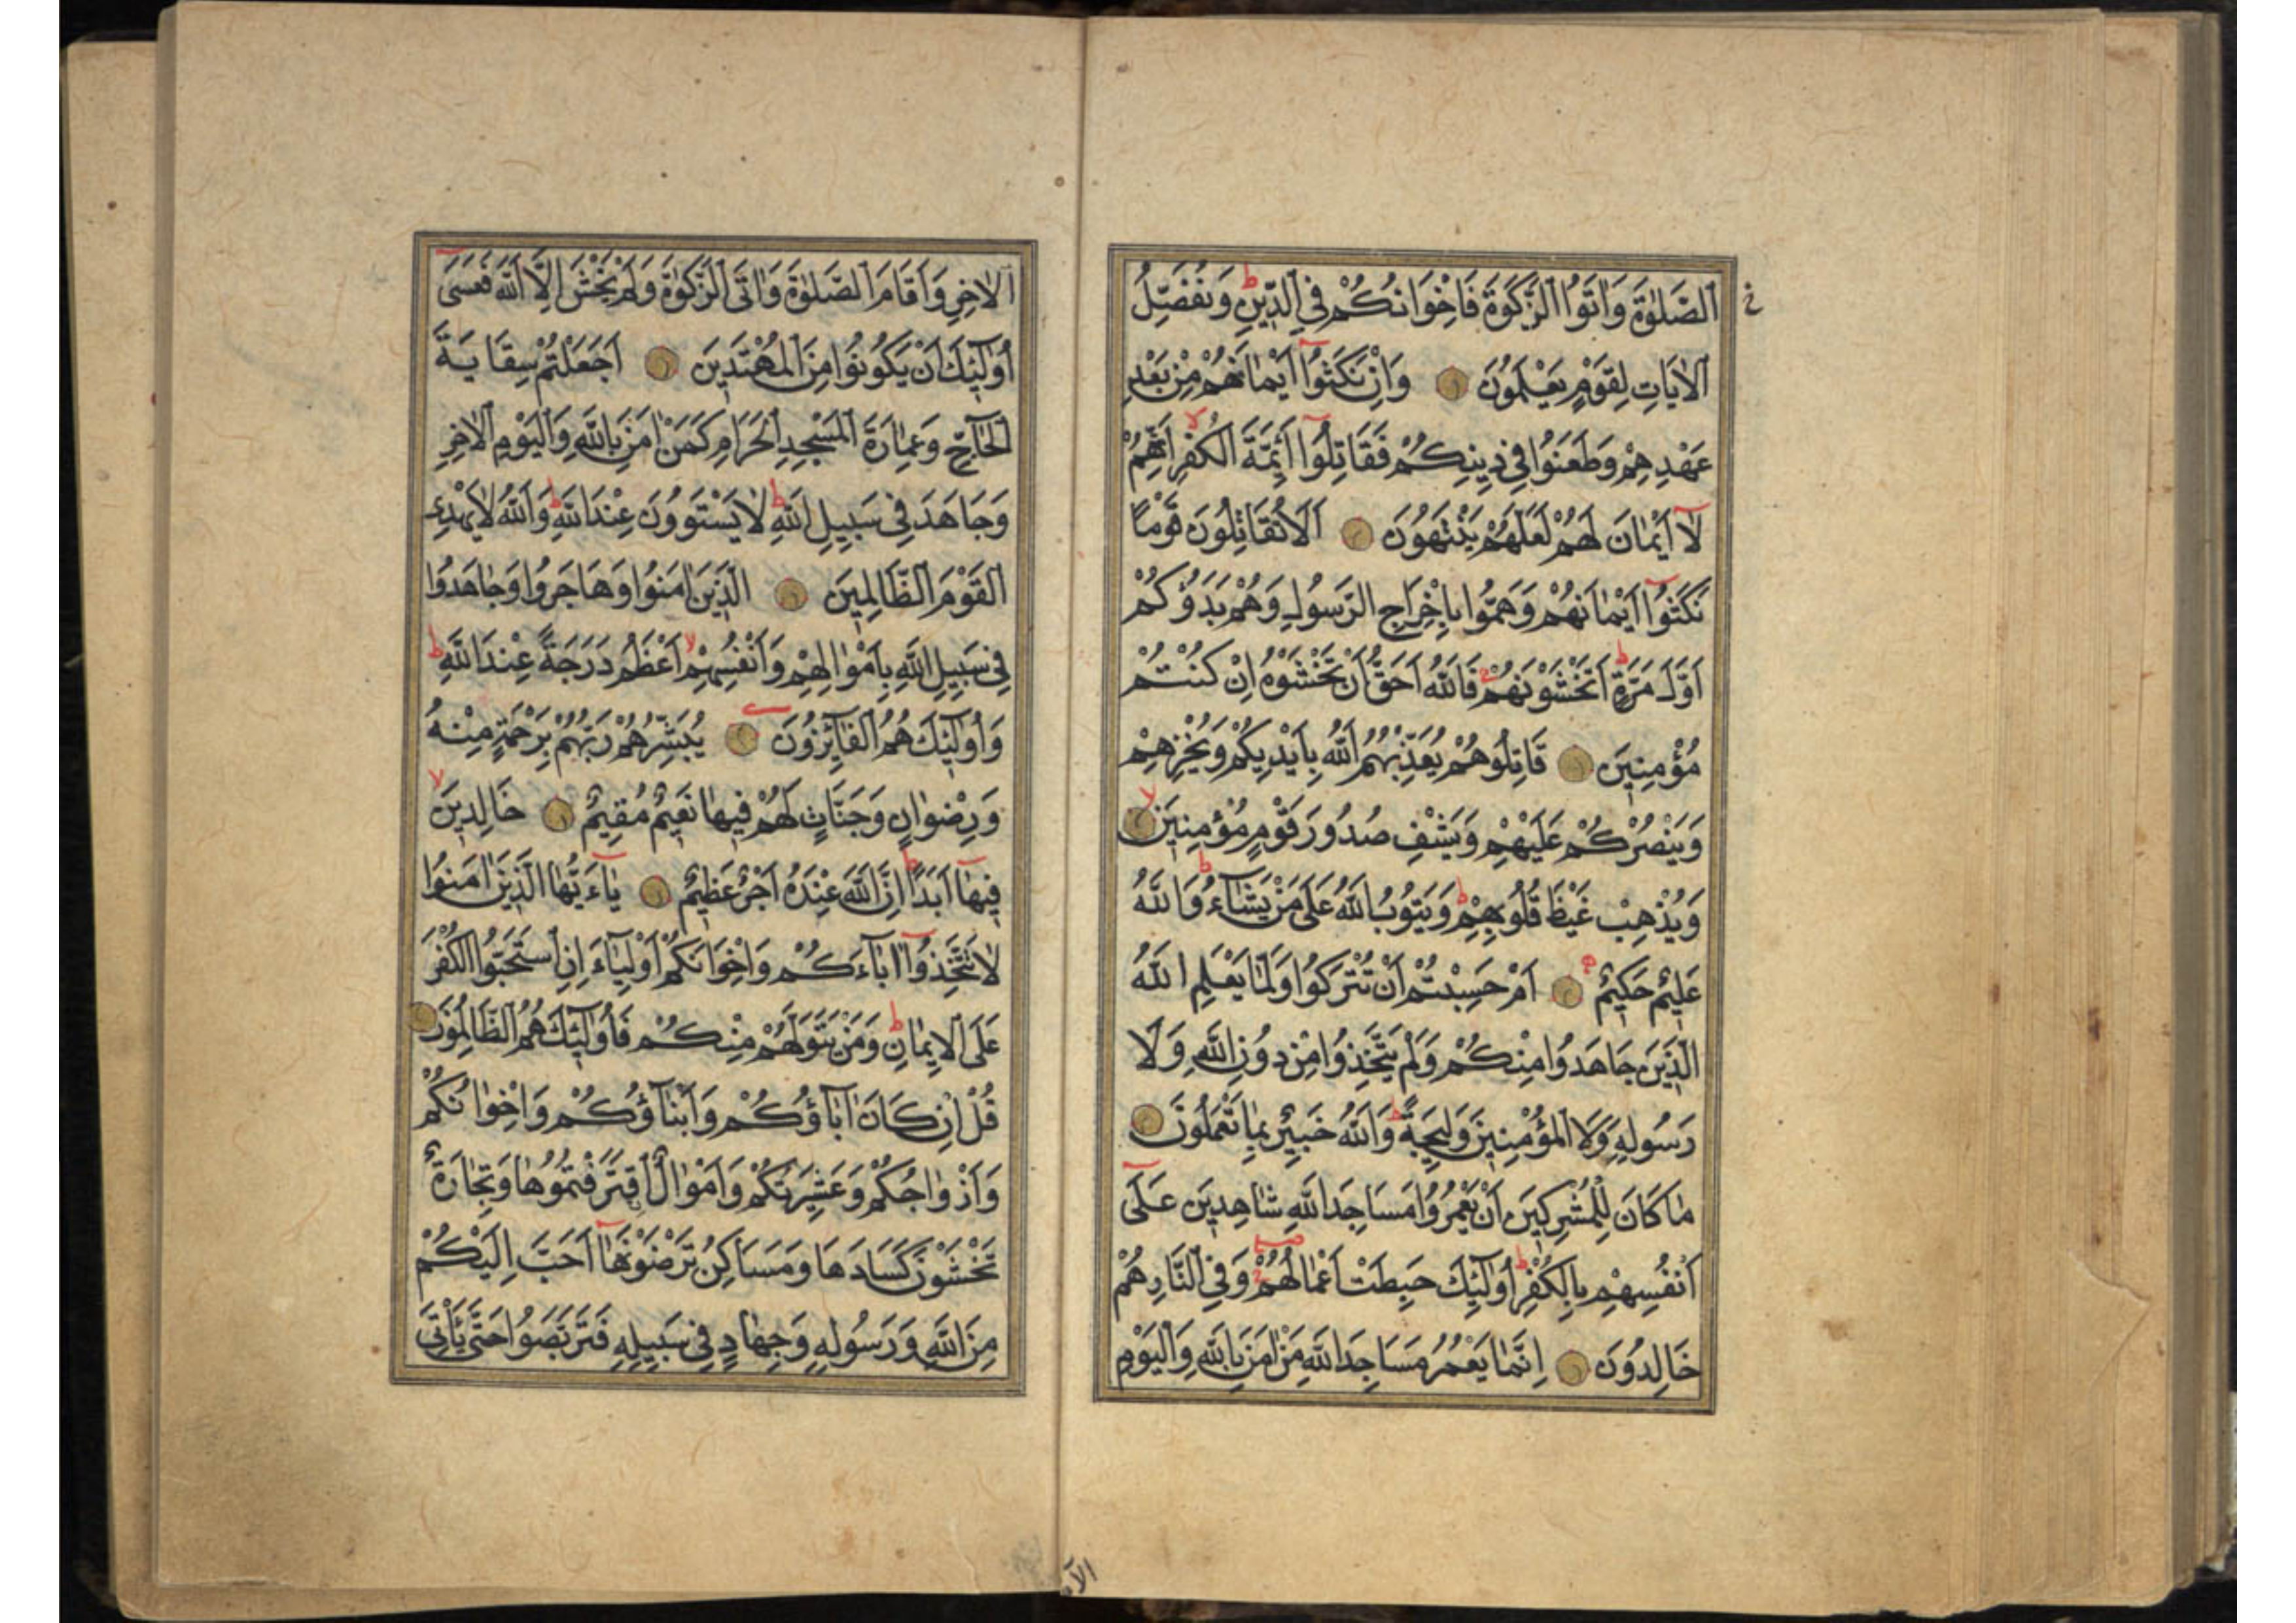 اَلصَّلٰوةَ وَاٰتَوُا الزَّكٰوةَ فَاِخْوَانُكُمْ فِي الدّ۪ينِ ط وَنُفَصِّلُ
الْاٰيَاتِ لِقَوْمٍ يَعْلَمُونَ وَاِنْ نَكَثُٓوا اَيْمَانَهُمْ مِنْ بَعْدِ
عَهْدِهِمْ وَطَعَنُوا ف۪ي د۪ينِكُمْ فَقَاتِلُٓوا اَئِمَّةَ الْكُفْرِ لا اِنَّهُمْ
لَٓا اَيْمَانَ لَهُمْ لَعَلَّهُمْ يَنْتَهُونَ اَلَا تُقَاتِلُونَ قَوْمًا
نَكَثُٓوا اَيْمَانَهُمْ وَهَمُّوا بِاِخْرَاجِ الرَّسُولِ وَهُمْ بَدَؤُكُمْ
اَوَّلَ مَرَّةٍ ط اَتَخْشَوْنَهُمْ ج فَاللّٰهُ اَحَقُّ اَنْ تَخْشَوْهُ اِنْ كُنْتُمْ
مُؤْمِن۪ينَ قَاتِلُوهُمْ يُعَذِّبْهُمُ اللّٰهُ بِاَيْد۪يكُمْ وَيُخْزِهِمْ
وَيَنْصُرْكُمْ عَلَيْهِمْ وَيَشْفِ صُدُورَ قَوْمٍ مُؤْمِن۪ينَ لا
وَيُذْهِبْ غَيْظَ قُلُوبِهِمْ ط وَيَتُوبُ اللّٰهُ عَلٰى مَنْ يَشَٓاءُ ط وَاللّٰهُ
عَل۪يمٌ حَك۪يمٌ اَمْ حَسِبْتُمْ اَنْ تُتْرَكُوا وَلَمَّا يَعْلَمِ اللّٰهُ
الَّذ۪ينَ جَاهَدُوا مِنْكُمْ وَلَمْ يَتَّخِذُوا مِنْ دُونِ اللّٰهِ وَلَا
رَسُولِه۪ وَلَا الْمُؤْمِن۪ينَ وَل۪يجَةً ط وَاللّٰهُ خَب۪يرٌ بِمَا تَعْمَلُونَ
مَا كَانَ لِلْمُشْرِك۪ينَ اَنْ يَعْمُرُوا مَسَاجِدَ اللّٰهِ شَاهِد۪ينَ عَلٰٓى
اَنْفُسِهِمْ بِالْكُفْرِ ط اُولٰٓئِكَ حَبِطَتْ اَعْمَالُهُمْ وَفِي النَّارِ هُمْ
خَالِدُونَ اِنَّمَا يَعْمُرُ مَسَاجِدَ اللّٰهِ مَنْ اٰمَنَ بِاللّٰهِ وَالْيَوْمِ
الْاٰخِرِ وَاَقَامَ الصَّلٰوةَ وَاٰتَى الزَّكٰوةَ وَلَمْ يَخْشَ اِلَّا اللّٰهَ فَعَسٰٓى
اُولٰٓئِكَ اَنْ يَكُونُوا مِنَ الْمُهْتَد۪ينَ اَجَعَلْتُمْ سِقَايَةَ
الْحَٓاجِّ وَعِمَارَةَ الْمَسْجِدِ الْحَرَامِ كَمَنْ اٰمَنَ بِاللّٰهِ وَالْيَوْمِ الْاٰخِرِ
وَجَاهَدَ ف۪ي سَب۪يلِ اللّٰهِ ط لَا يَسْتَوُونَ عِنْدَ اللّٰهِ ط وَاللّٰهُ لَا يَهْدِي
الْقَوْمَ الظَّالِم۪ينَ اَلَّذ۪ينَ اٰمَنُوا وَهَاجَرُوا وَجَاهَدُوا
ف۪ي سَب۪يلِ اللّٰهِ بِاَمْوَالِهِمْ وَاَنْفُسِهِمْ لا اَعْظَمُ دَرَجَةً عِنْدَ اللّٰهِ ط
وَاُولٰٓئِكَ هُمُ الْفَٓائِزُونَ يُبَشِّرُهُمْ رَبُّهُمْ بِرَحْمَةٍ مِنْهُ
وَرِضْوَانٍ وَجَنَّاتٍ لَهُمْ ف۪يهَا نَع۪يمٌ مُق۪يمٌ خَالِد۪ينَ لا
ف۪يهَٓا اَبَدًا ط اِنَّ اللّٰهَ عِنْدَهُٓ اَجْرٌ عَظ۪يمٌ يَٓا اَيُّهَا الَّذ۪ينَ اٰمَنُوا
لَا تَتَّخِذُٓوا اٰبَٓاءَكُمْ وَاِخْوَانَكُمْ اَوْلِيَٓاءَ اِنِ اسْتَحَبُّوا الْكُفْرَ
عَلَى الْا۪يمَانِ ط وَمَنْ يَتَوَلَّهُمْ مِنْكُمْ فَاُولٰٓئِكَ هُمُ الظَّالِمُونَ
قُلْ اِنْ كَانَ اٰبَٓاؤُكُمْ وَاَبْنَٓاؤُكُمْ وَاِخْوَانُكُمْ
وَاَزْوَاجُكُمْ وَعَش۪يرَتُكُمْ وَاَمْوَالٌ اقْتَرَفْتُمُوهَا وَتِجَارَةٌ
تَخْشَوْنَ كَسَادَهَا وَمَسَاكِنُ تَرْضَوْنَهَٓا اَحَبَّ اِلَيْكُمْ
مِنَ اللّٰهِ وَرَسُولِه۪ وَجِهَادٍ ف۪ي سَب۪يلِه۪ فَتَرَبَّصُوا حَتّٰى يَأْتِيَ